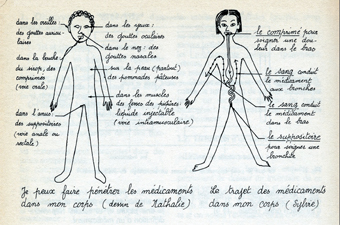 dans les oreilles
des gouttes auricu-
laires
dans la bouche
du sirop, des
comprimés
(voie orale)
dans l'anus :
des suppositoires
(voie anale ou
rectale)
dans les yeux :
des gouttes oculaires
dans le nez : des
gouttes nasales
sur la peau (partout)
des pommades pâteuses
dans les muscles
des fesses des piqûres :
liquide injectable
(voie intramusculaire)
Je peux faire pénétrer les médicaments
dans mon corps (dessin de Nathalie)
le comprimé pour
soigner une dou-
leur dans le bras
le sang conduit
le médicament
aux bronches
le sang conduit
le médicament
dans le bras
le suppositoire
pour soigner une
bronchite
Le trajet des médicaments
dans mon corps (Sylvie)